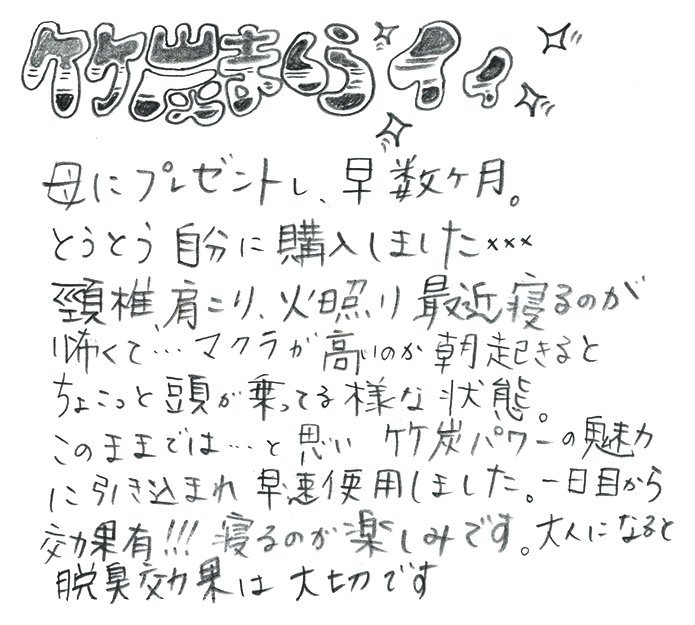 竹炭まくらイイ
母にプレゼントし、早数ケ月。
とうとう自分に購入しました×××
頸椎、肩こり、火照り最近寝るのが
怖くて…マクラが高いのか朝起きると
ちょこっと頭が乗ってる様な状態。
このままでは…と思い 竹炭パワーの魅力
に引き込まれ早速使用しました。一日目から
効果有!!!寝るのが楽しみです。大人になると
脱臭効果は大切です